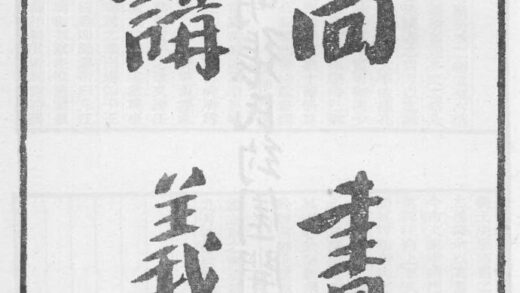 尚書
講義